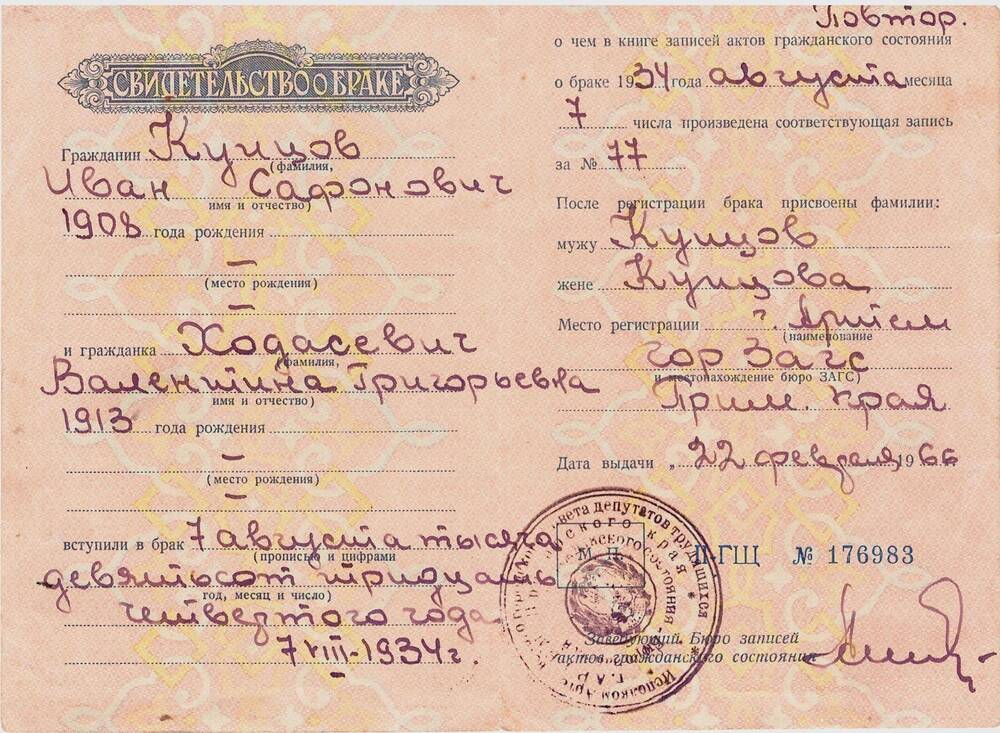 СВИДЕТЕЛЬСТВО О БРАКЕ
Гражданин Купцов
(фамилия,
Иван Сафонович
имя и отчество)
1908 года рождения
—
(место рождения)
—
и гражданка Ходасевич
(фамилия,
Валентина Григорьевна
имя и отчество)
1913 года рождения
—
(место рождения)
—
вступили в брак 7 августа тысяча
(прописью и цифрами
девятьсот тридцать
год, месяц и число)
четвертого года
7 VIII-1934 г.
Повтор.
о чем в книге записей актов гражданского состояния
о браке 1934 года августа месяца
7 числа произведена соответствующая запись
за № 77
После регистрации брака присвоены фамилии:
мужу Купцов
жене Купцова
Место регистрации г. Артем
(наименование
гор Загс
и местонахождение бюро ЗАГС)
Прим. края
Дата выдачи „ 22 февраля 1966
М. П. II-ГЩ № 176983
Заведующий Бюро записей
актов гражданского состояния
депутатов трудящихся * Исполком